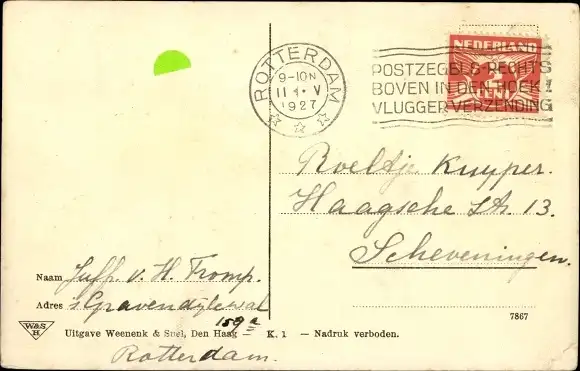 ROTTERDAM
9-10N
1927
NEDERLAND
POSTZEGELS RECHTS
BOVEN IN DEN HOEK!
VLUGGER VERZENDING
Roeltje Kuyper.
Haagsche Str. 13.
Scheveningen.
Naam Juffr. v. H. Tromp.
Adres 's Gravendijkwal
159a
W&S
H
Uitgave Weenenk & Snel, Den Haag — K. 1 — Nadruk verboden.
7867
Rotterdam.